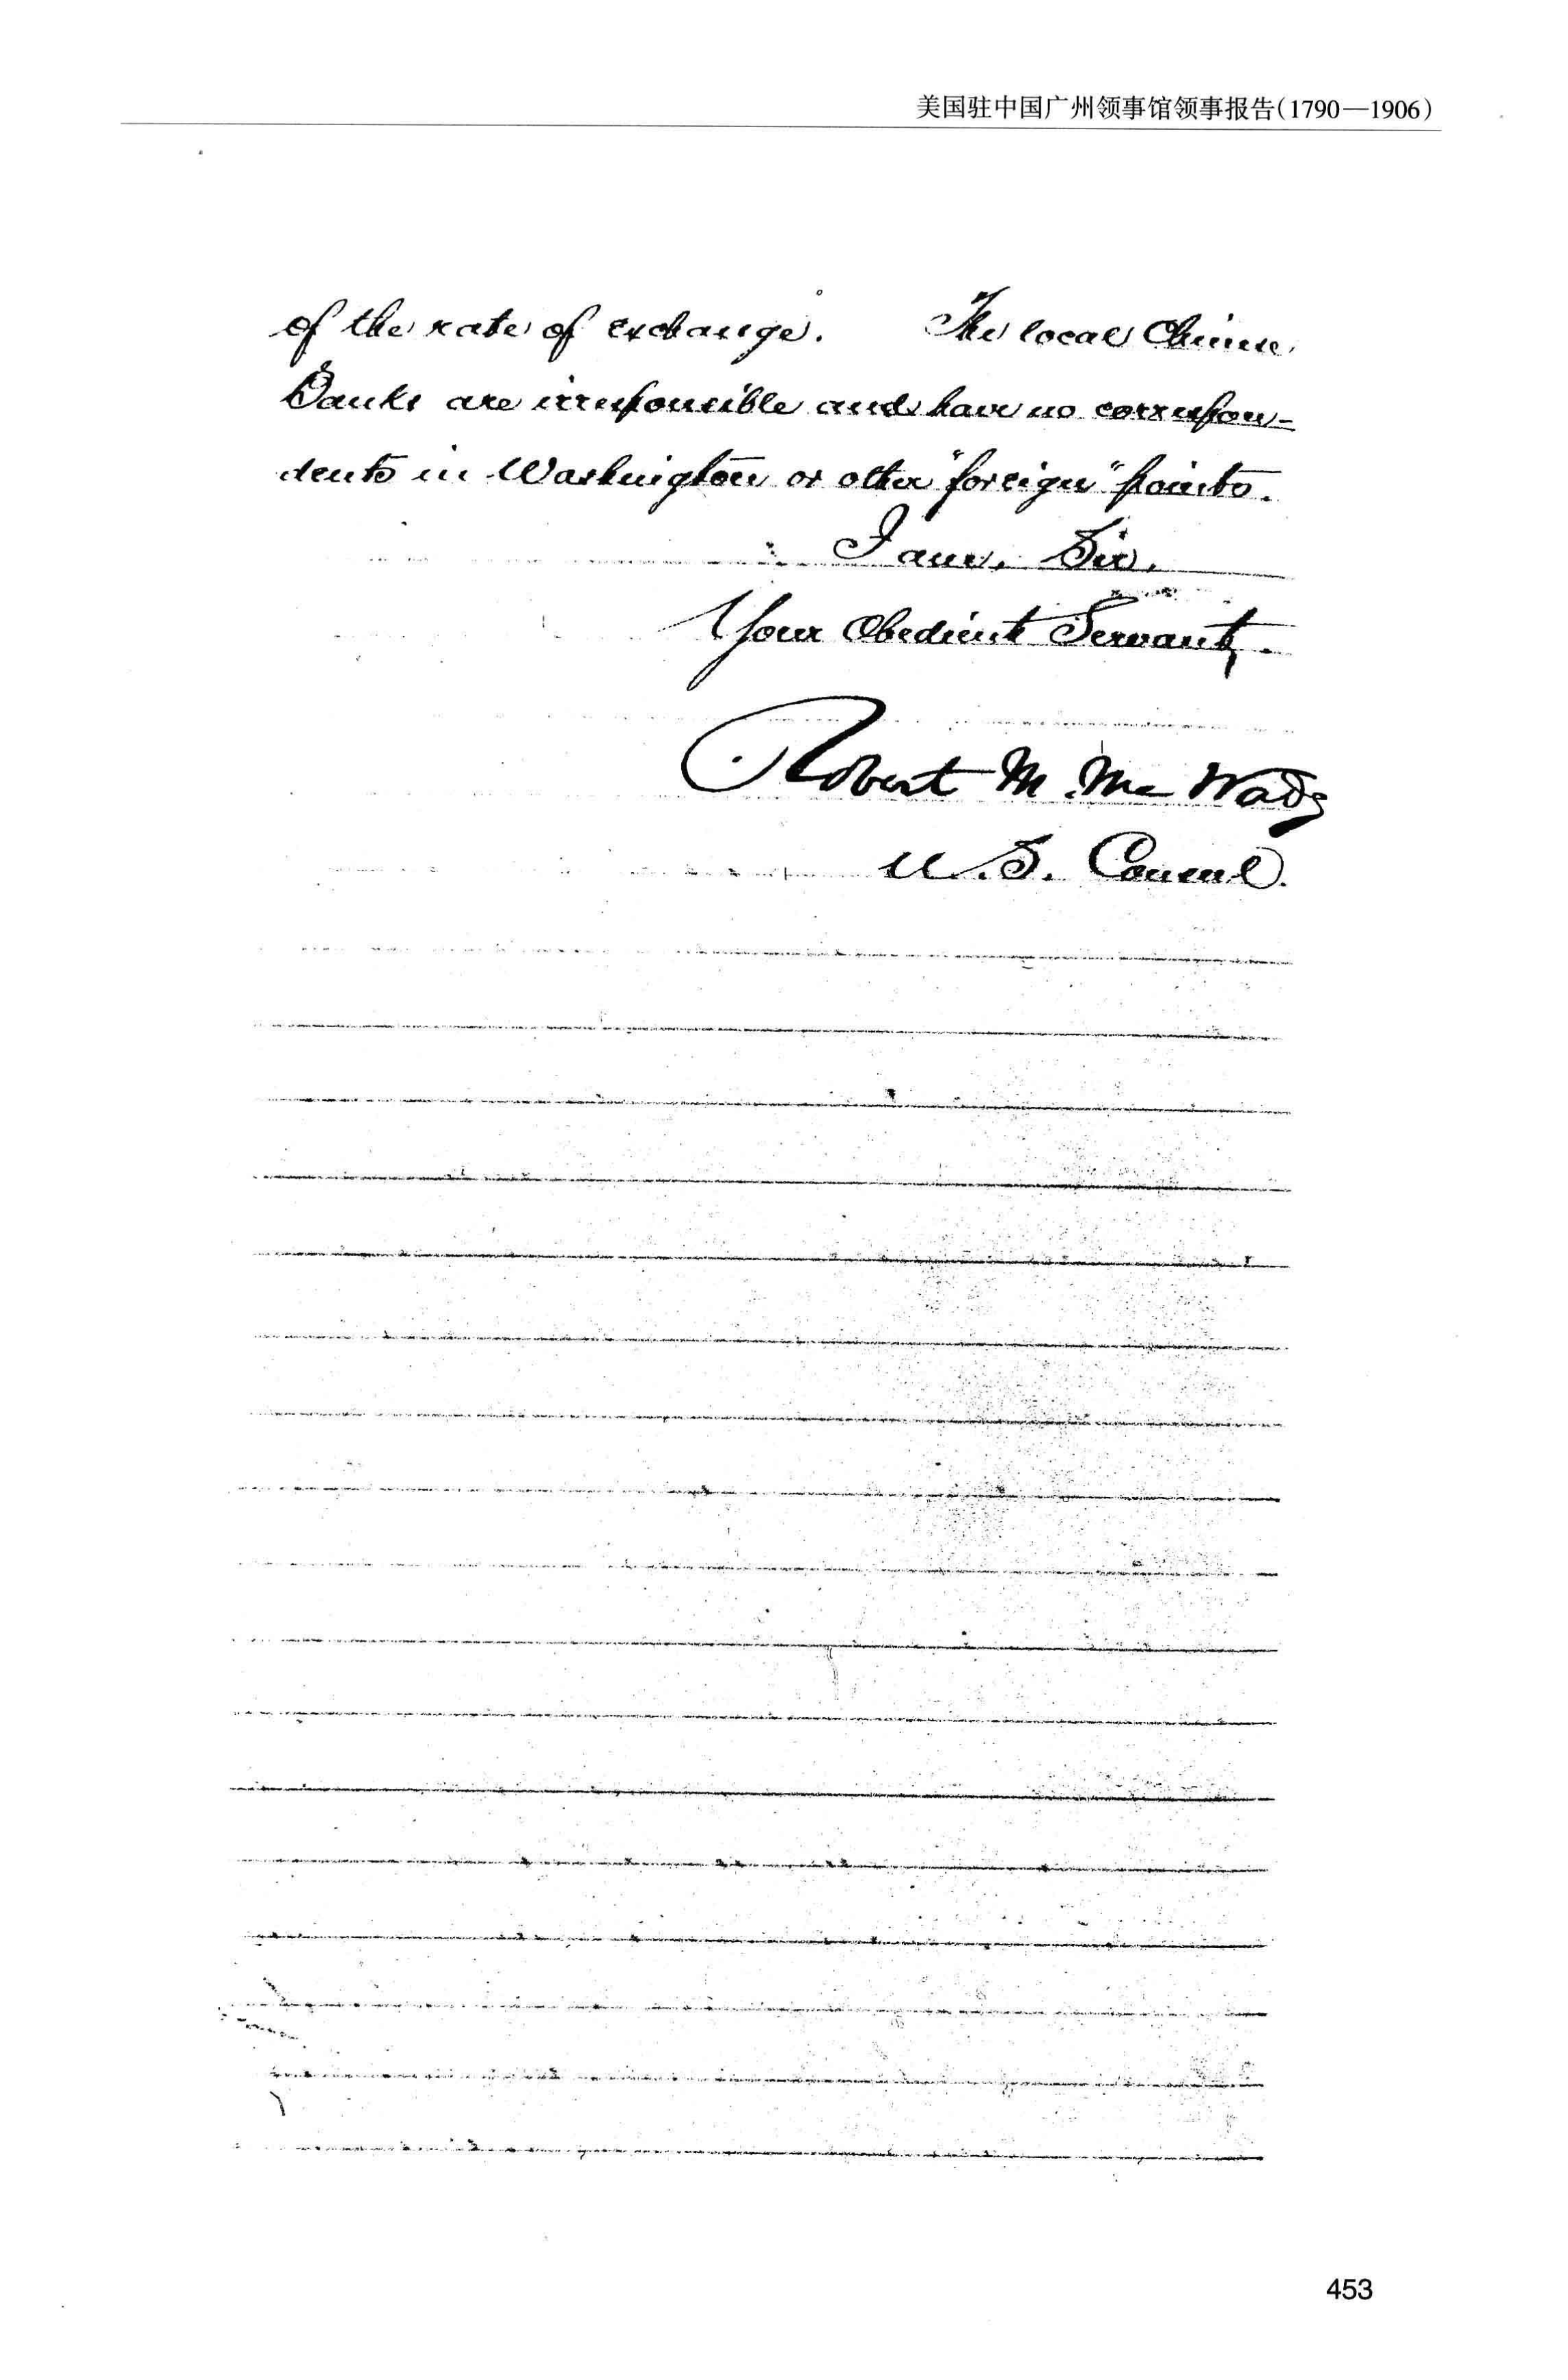 美国驻中国广州领事馆领事报告(1790—1906)
of the rate of exchange. The local Chinese
Banks are irresponsible and have no correspon-
dents in Washington or other "foreign" points.
I am, Sir,
Your Obedient Servant,
Robert M. McWade
U.S. Consul.
453